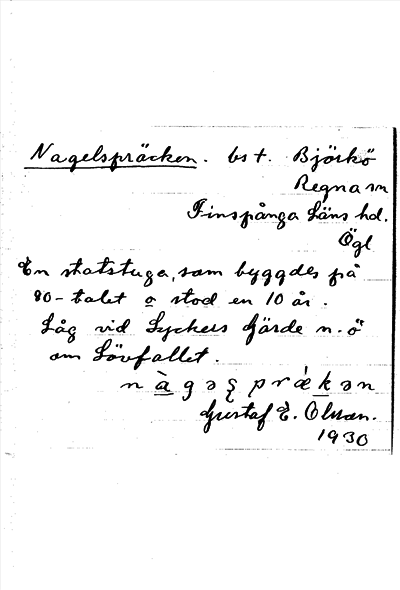 Nagelspräcken. bst. Björkö
Regna sn
Finspånga Läns hd.
Ögl
En statstuga, som byggdes på
80-talet o stod en 10 år.
Låg vid Lyckers Gärde n.ö
om Lövfallet.
nàgəʂprǽkən
Gustaf E. Olsson.
1930